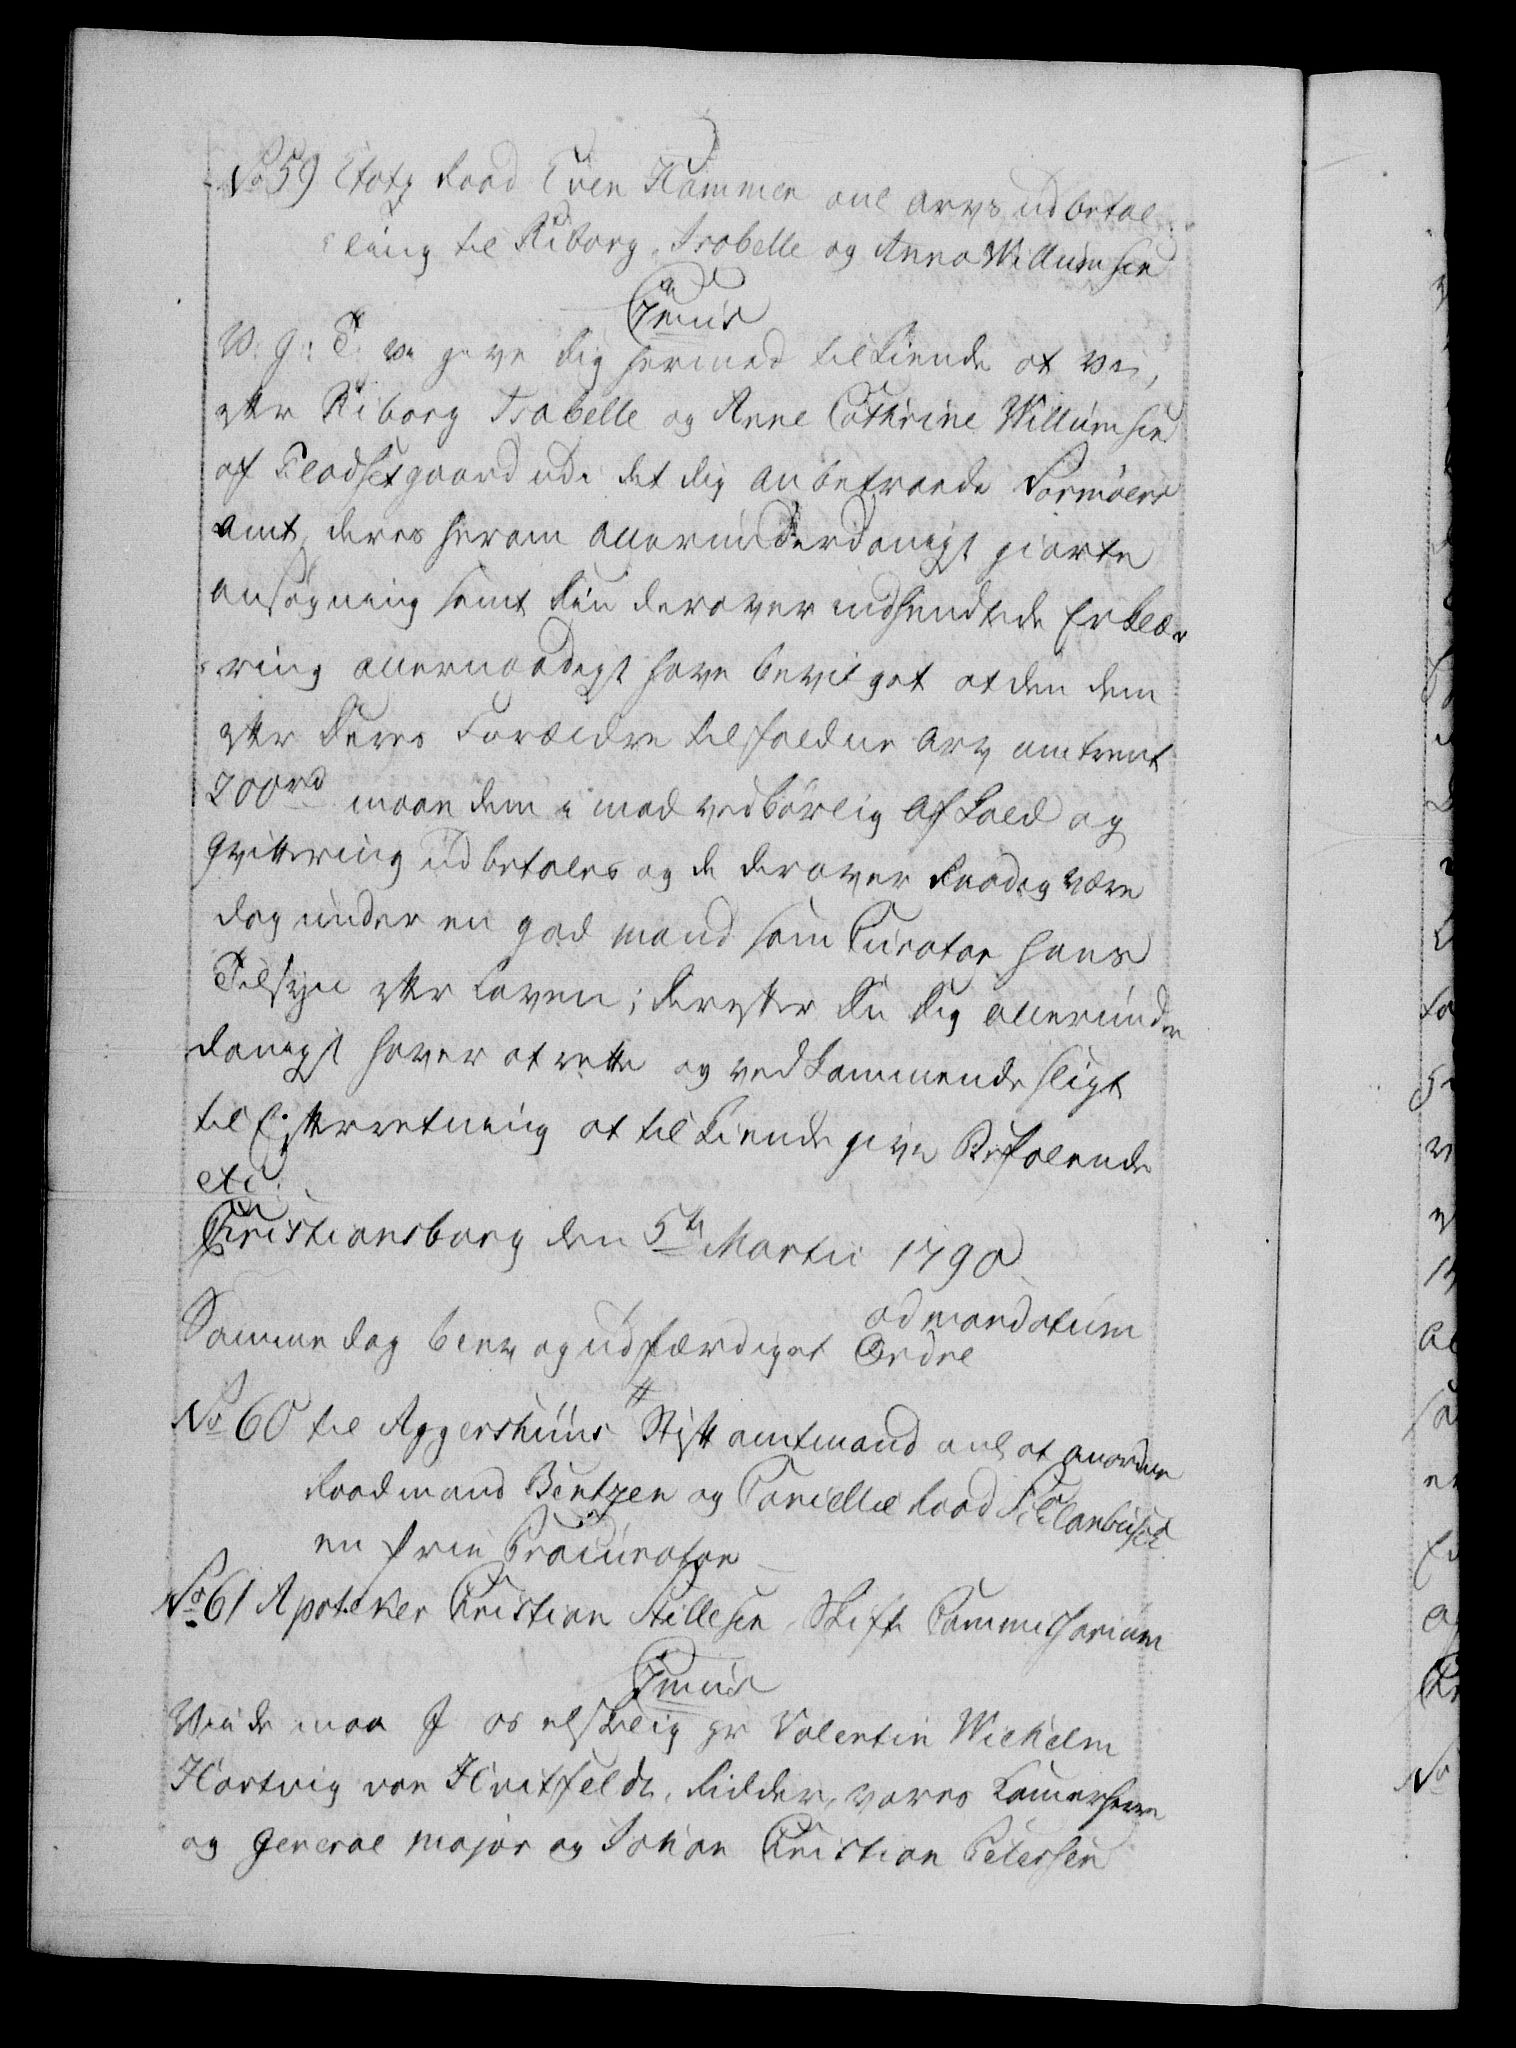 No 59 Etatz Raad Even Hammer anl arvs udbetal
ling til Riborg, Isabelle og Anna Willumsen
C7mus
V: G: T: vi give dig hermed tilkiende at vi,
efter Riborg Isabelle og Anne Cathrine Willumsen
af Fladsetgaard udi det dig anbetroede Romsdals
amt deres herom allerunderdanigst giorte
ansøgning samt din derover indsendte Erklæ
ring allernaadigst have bevilget at den dem
efter deres Forældre tilfaldne Arv omtrent
200rd maae dem imod vedbørlig Afkald og
Qvittering udbetales og de derover Raadig være
dog under en god mand som Curator hans
Tilsyn efter Loven; derefter du dig allerunder
danigst haver at rette og vedkommende sligt
til Efterretning at tilkiende give Befalende
etc:
Christiansborg den 5te Martii 1790
Samme dag blev og udfærdiget ad mandatum
Ordre
No 60 til Aggershuus Stiftamtmand anl at anordne
Raadmand Bentzen og Cancellie Raad
en frie Procurator
No 61 Apoteker Christian Stillesen Skifte Commissarium
C7mus
Viide maa I os elskelig Hr Valentin Wilhelm
Hartvig von Hvitfeldt, Ridder, vores Kamerherre
og General major og Johan Christian Petersen